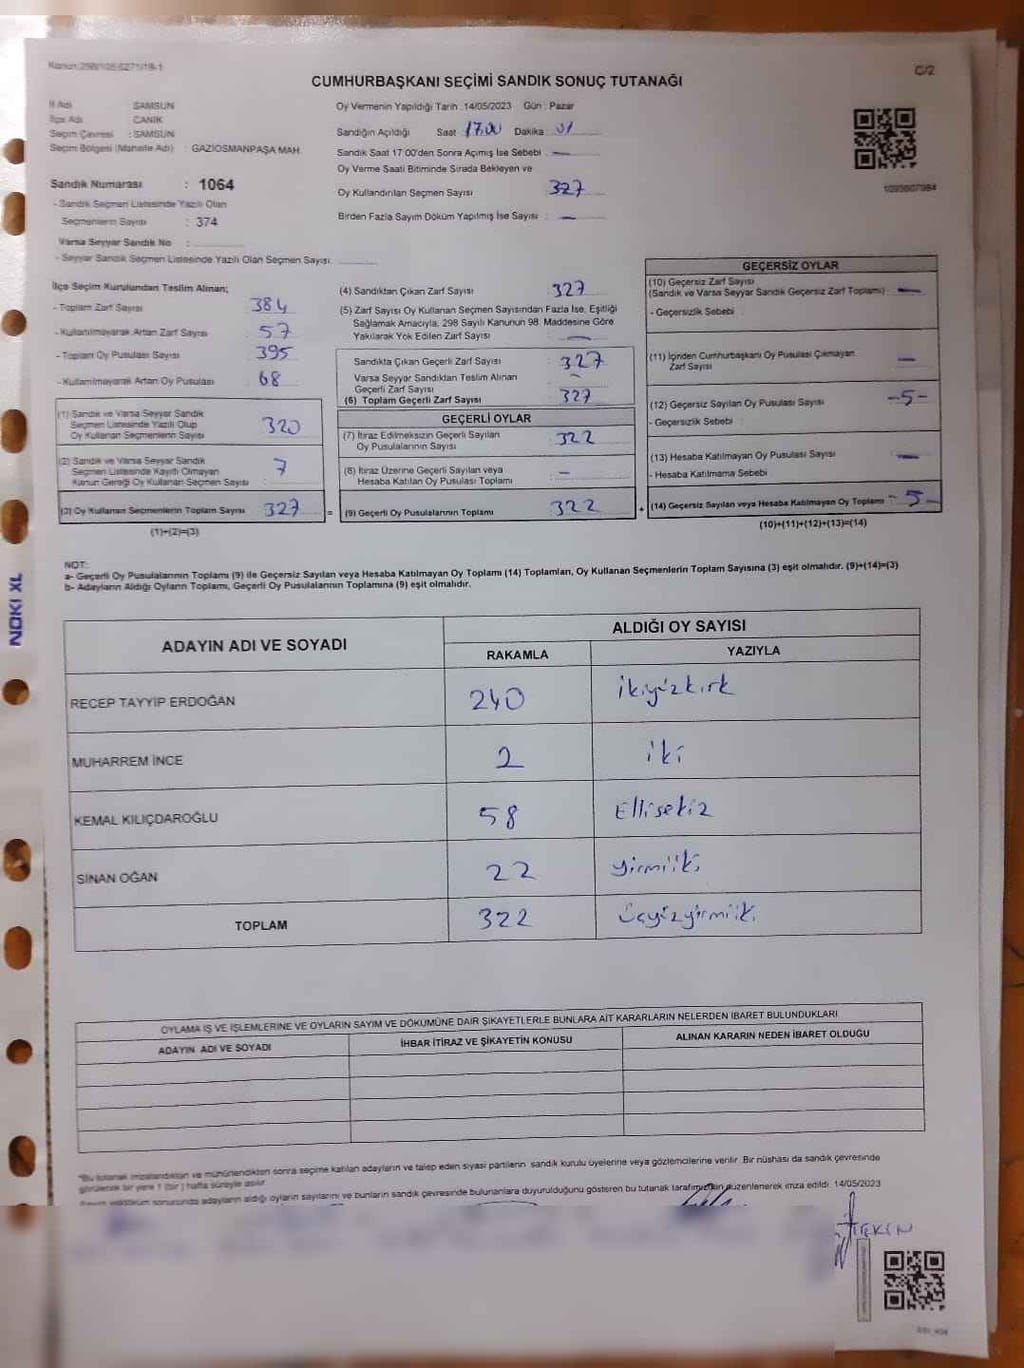 Kanun:298/105-6271/19-1
C/2
CUMHURBAŞKANI SEÇİMİ SANDIK SONUÇ TUTANAĞI
İl Adı SAMSUN
İlçe Adı CANİK
Seçim Çevresi : SAMSUN
Seçim Bölgesi (Mahalle Adı) : GAZİOSMANPAŞA MAH.
Sandık Numarası : 1064
- Sandık Seçmen Listesinde Yazılı Olan
Seçmenlerin Sayısı : 374
Varsa Seyyar Sandık No :
- Seyyar Sandık Seçmen Listesinde Yazılı Olan Seçmen Sayısı:
Oy Vermenin Yapıldığı Tarih :14/05/2023 Gün : Pazar
Sandığın Açıldığı Saat 17.00 Dakika : 01
Sandık Saat 17:00'den Sonra Açımış İse Sebebi : —
Oy Verme Saati Bitiminde Sırada Bekleyen ve
Oy Kullandırılan Seçmen Sayısı 327
Birden Fazla Sayım Döküm Yapılmış İse Sayısı : —
1095607984
İlçe Seçim Kurulundan Teslim Alınan;
- Toplam Zarf Sayısı 384
- Kullanılmayarak Artan Zarf Sayısı 57
- Toplam Oy Pusulası Sayısı 395
- Kullanılmayarak Artan Oy Pusulası 68
(1) Sandık ve Varsa Seyyar Sandık
Seçmen Listesinde Yazılı Olup
Oy Kullanan Seçmenlerin Sayısı 320
(2) Sandık ve Varsa Seyyar Sandık
Seçmen Listesinde Kayıtlı Olmayan
Kanun Gereği Oy Kullanan Seçmen Sayısı 7
(3) Oy Kullanan Seçmenlerin Toplam Sayısı 327 =
(1)+(2)=(3)
(4) Sandıktan Çıkan Zarf Sayısı 327
(5) Zarf Sayısı Oy Kullanan Seçmen Sayısından Fazla İse, Eşitliği
Sağlamak Amacıyla, 298 Sayılı Kanunun 98. Maddesine Göre
Yakılarak Yok Edilen Zarf Sayısı —
Sandıkta Çıkan Geçerli Zarf Sayısı : 327
Varsa Seyyar Sandıktan Teslim Alınan
Geçerli Zarf Sayısı —
(6) Toplam Geçerli Zarf Sayısı 327
GEÇERLİ OYLAR
(7) İtiraz Edilmeksizin Geçerli Sayılan
Oy Pusulalarının Sayısı 322
(8) İtiraz Üzerine Geçerli Sayılan veya
Hesaba Katılan Oy Pusulası Toplamı : —
(9) Geçerli Oy Pusulalarının Toplamı 322 +
GEÇERSİZ OYLAR
(10) Geçersiz Zarf Sayısı
(Sandık ve Varsa Seyyar Sandık Geçersiz Zarf Toplamı) —
- Geçersizlik Sebebi
(11) İçinden Cumhurbaşkanı Oy Pusulası Çıkmayan
Zarf Sayısı —
(12) Geçersiz Sayılan Oy Pusulası Sayısı -5-
- Geçersizlik Sebebi :
(13) Hesaba Katılmayan Oy Pusulası Sayısı —
- Hesaba Katılmama Sebebi
(14) Geçersiz Sayılan veya Hesaba Katılmayan Oy Toplamı - 5 -
(10)+(11)+(12)+(13)=(14)
NOT:
a- Geçerli Oy Pusulalarının Toplamı (9) ile Geçersiz Sayılan veya Hesaba Katılmayan Oy Toplamı (14) Toplamları, Oy Kullanan Seçmenlerin Toplam Sayısına (3) eşit olmalıdır. (9)+(14)=(3)
b- Adayların Aldığı Oyların Toplamı, Geçerli Oy Pusulalarının Toplamına (9) eşit olmalıdır.
NOKI XL
ADAYIN ADI VE SOYADI ALDIĞI OY SAYISI
RAKAMLA YAZIYLA
RECEP TAYYİP ERDOĞAN 240 ikiyüzkırk
MUHARREM İNCE 2 iki
KEMAL KILIÇDAROĞLU 58 Ellisekiz
SİNAN OĞAN 22 yirmiiki
TOPLAM 322 üçyüzyirmiiki
OYLAMA İŞ VE İŞLEMLERİNE VE OYLARIN SAYIM VE DÖKÜMÜNE DAİR ŞİKAYETLERLE BUNLARA AİT KARARLARIN NELERDEN İBARET BULUNDUKLARI
ADAYIN ADI VE SOYADI İHBAR İTİRAZ VE ŞİKAYETİN KONUSU ALINAN KARARIN NEDEN İBARET OLDUĞU
"Bu tutanak imzalandıktan ve mühürlendikten sonra seçime katılan adayların ve talep eden siyasi partilerin sandık kurulu üyelerine veya gözlemcilerine verilir. Bir nüshası da sandık çevresinde
görülecek bir yere 1 (bir) hafta süreyle asılır
sonucunda adayların aldığı oyların sayılarını ve bunların sandık çevresinde bulunanlara duyurulduğunu gösteren bu tutanak tarafımızdan düzenlenerek imza edildi. 14/05/2023
TEKİN